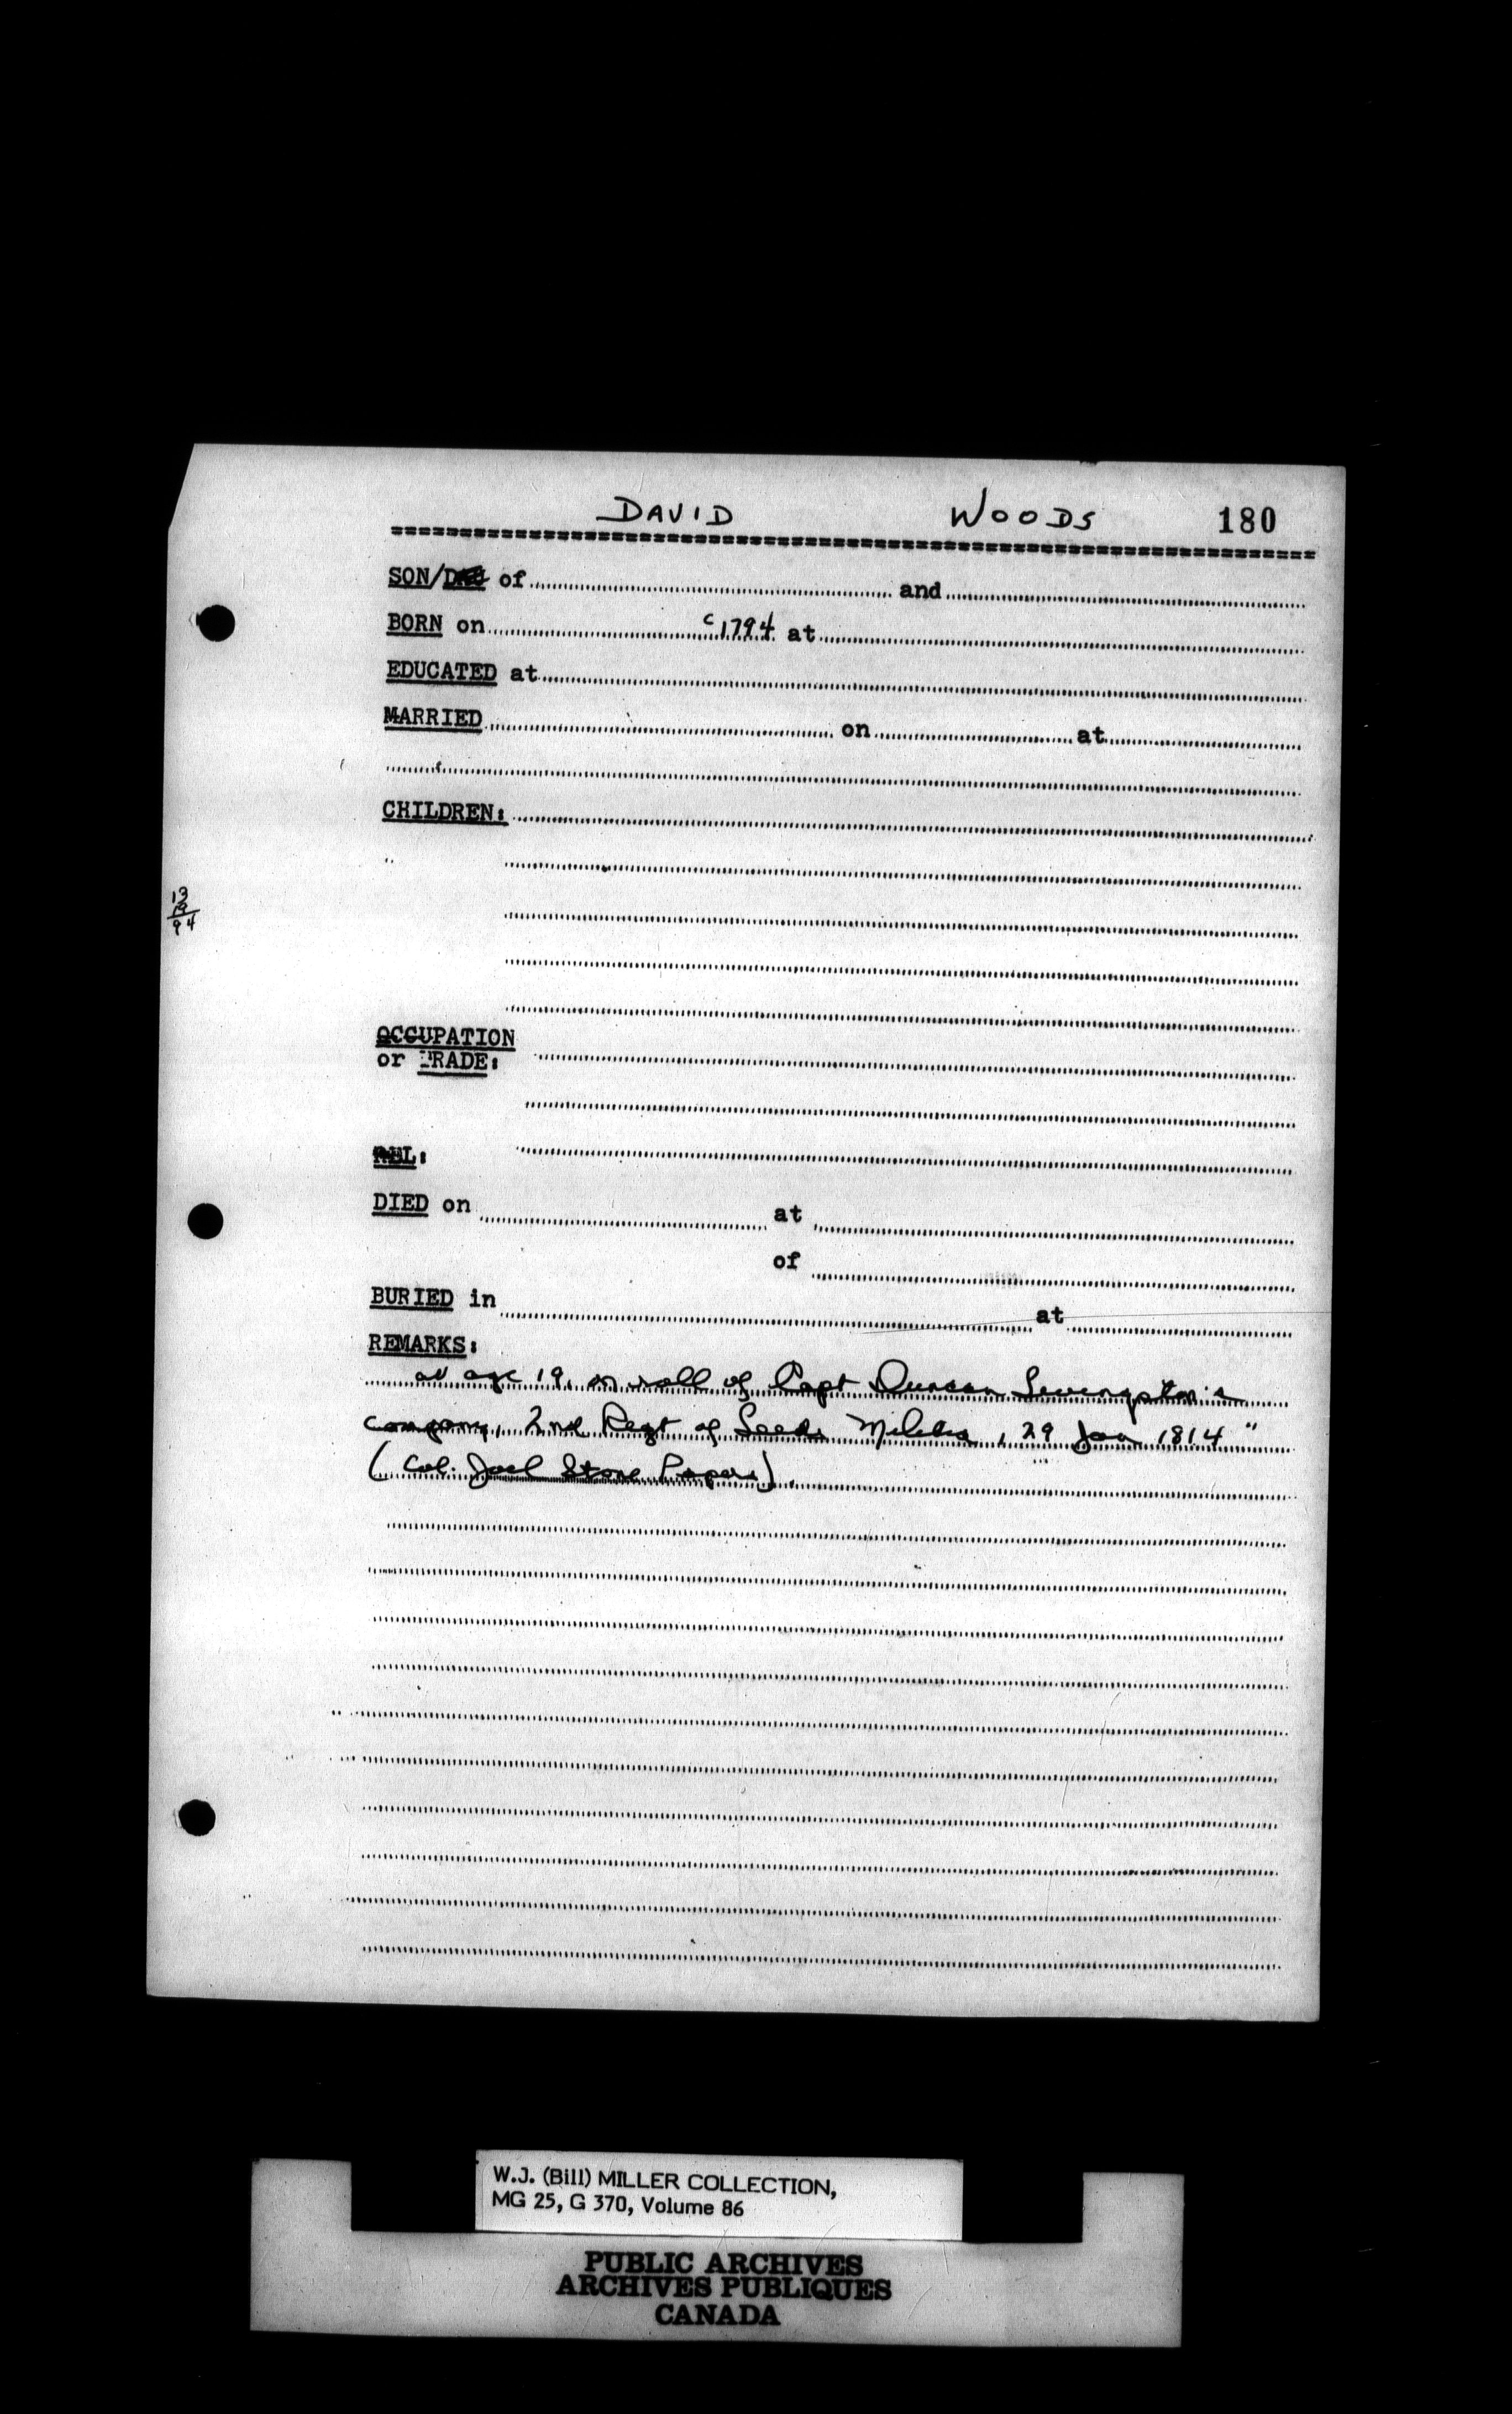 DAVID WOODS 180
SON/DAU of and
BORN on c 1794 at
EDUCATED at
MARRIED on at
CHILDREN:
13
19
94
OCCUPATION
or TRADE:
REL:
DIED on at
of
BURIED in at
REMARKS:
at age 19, on roll of Capt Duncan Livingston's
company, 2nd Regt of Leeds Militia, 29 Jan 1814"
(Col. Joel Stone Papers).
W.J. (Bill) MILLER COLLECTION,
MG 25, G 370, Volume 86
PUBLIC ARCHIVES
ARCHIVES PUBLIQUES
CANADA